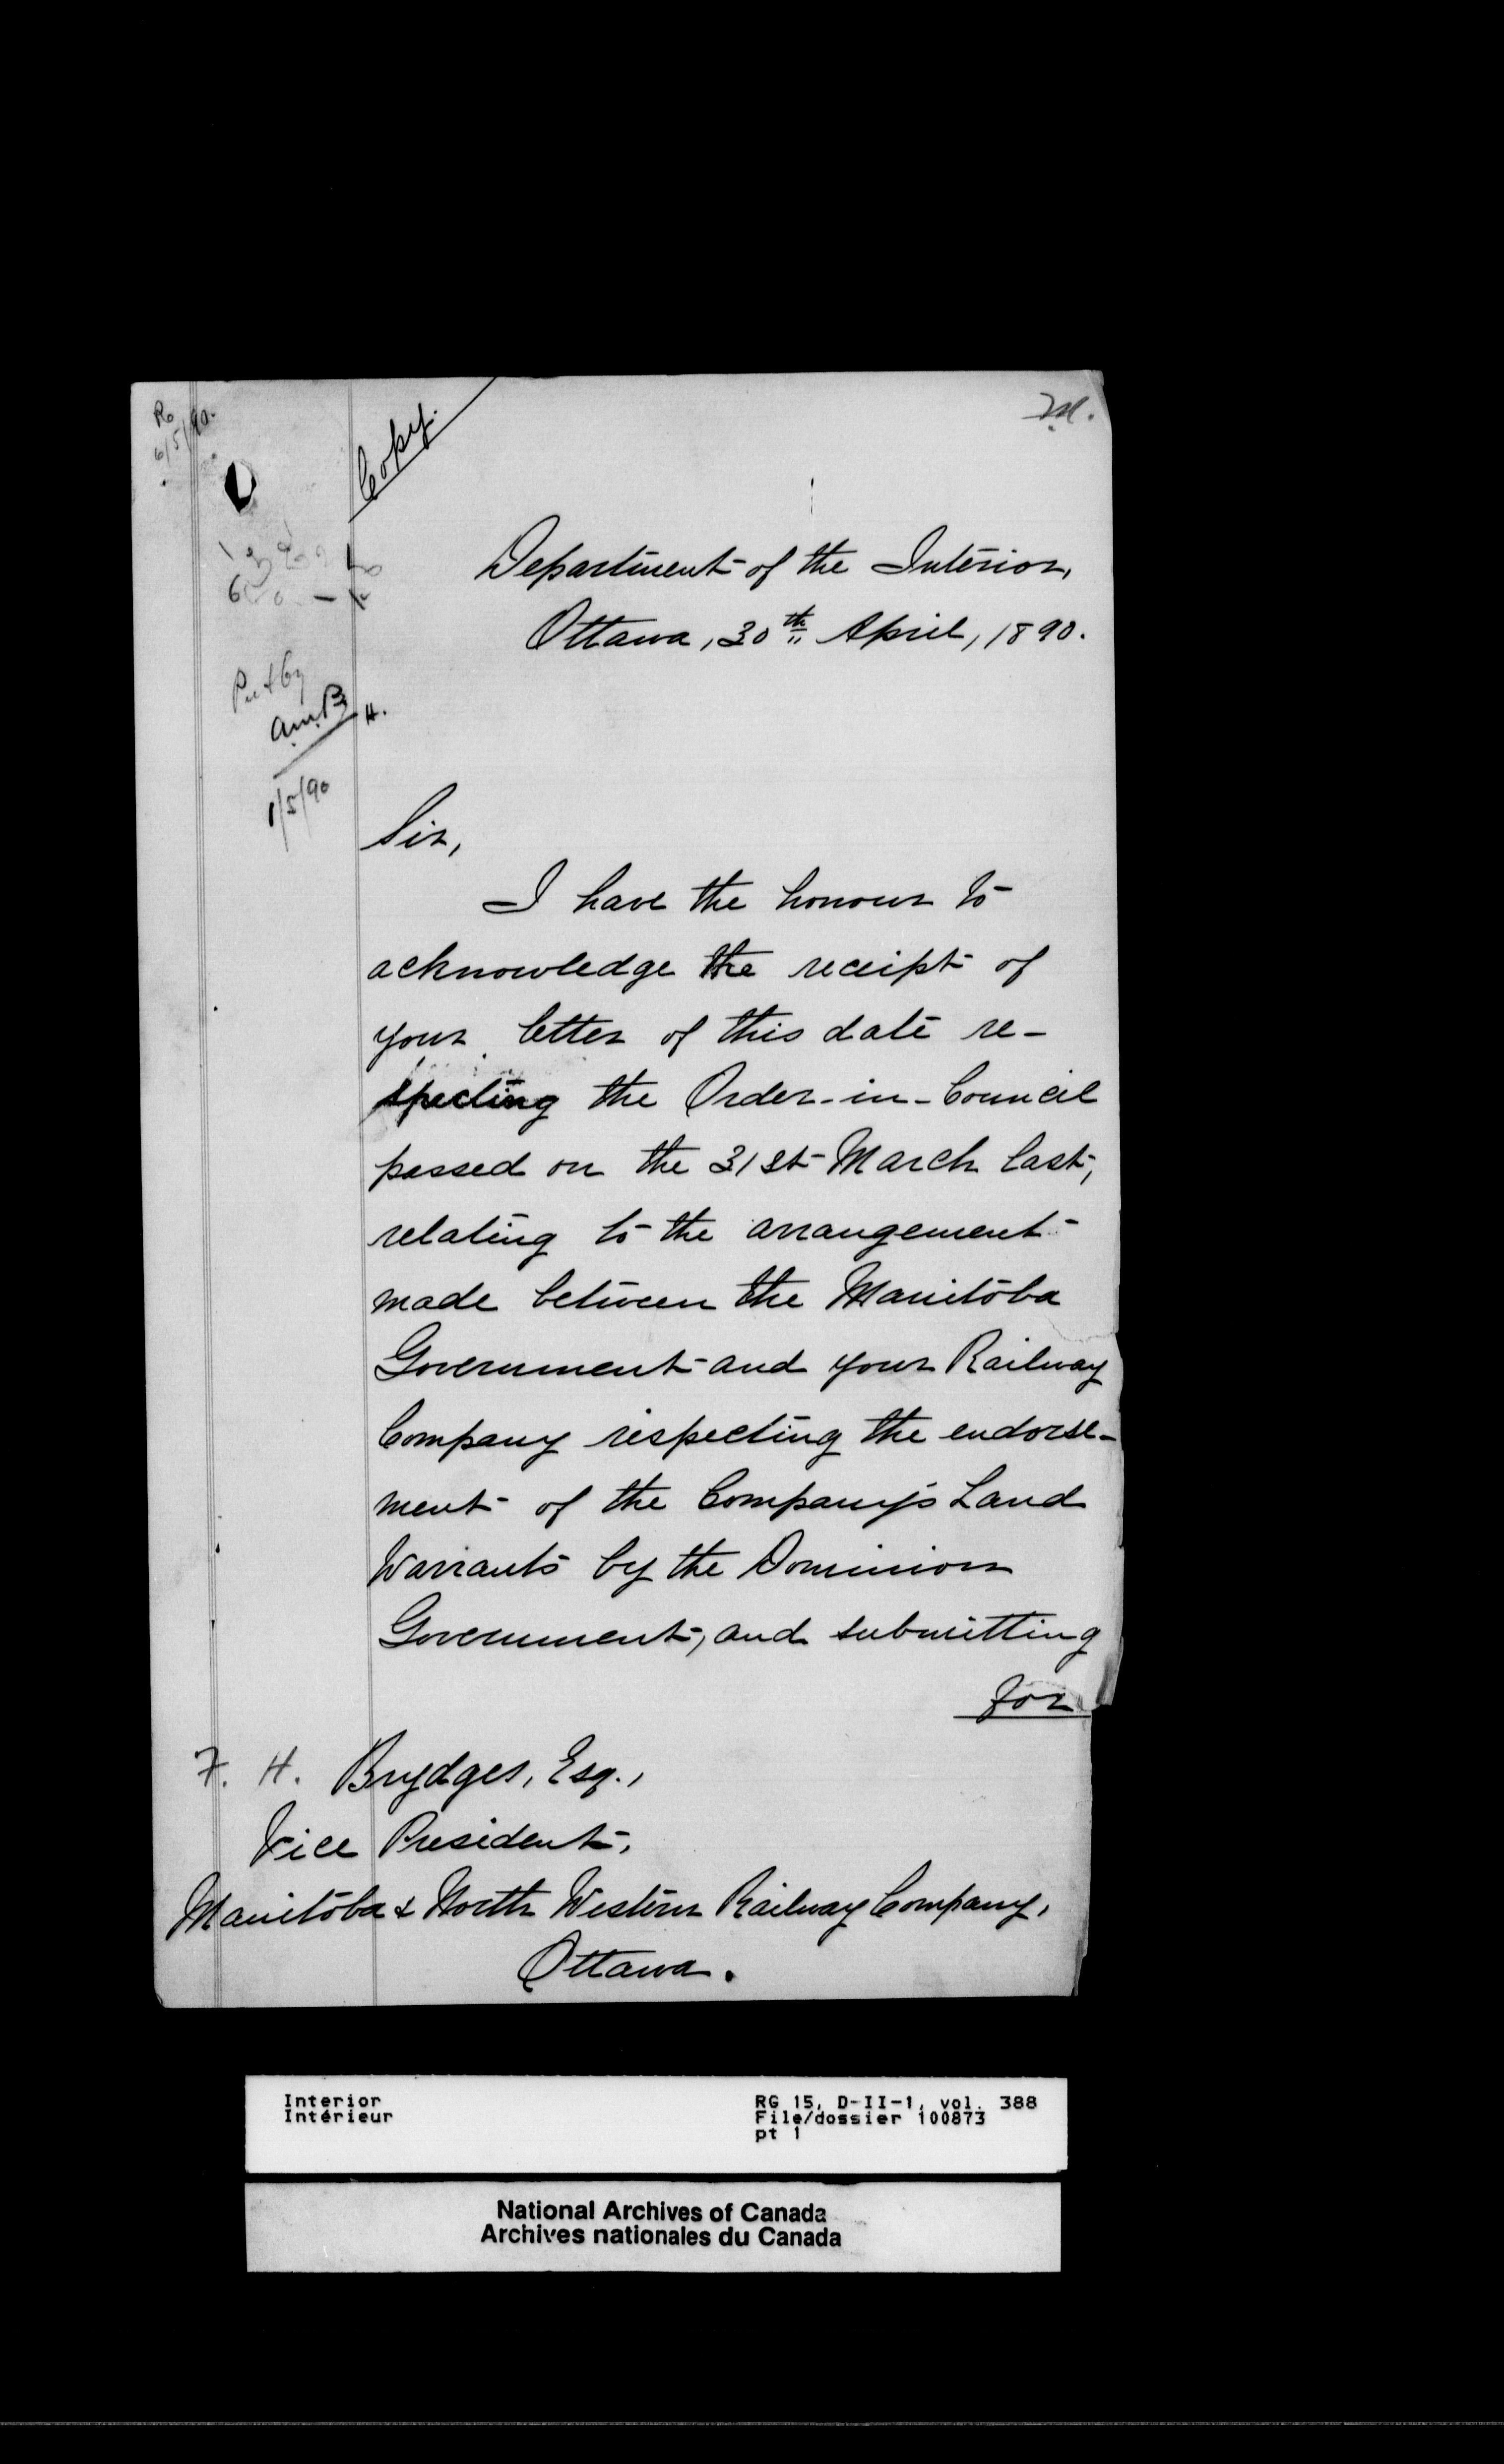 Copy.
M.
6/5/90.
Department of the Interior,
Ottawa, 30th April, 1890.
Put by
A.M.B.
H.
1/5/90
Sir,
I have the honour to
acknowledge the receipt of
your letter of this date re-
specting the Order-in-Council
passed on the 31st March last,
relating to the arrangement
made between the Manitoba
Government and your Railway
Company respecting the endorse-
ment of the Company's Land
Warrants by the Dominion
Government, and submitting
for
F. H. Brydges, Esq.,
Vice President,
Manitoba & North Western Railway Company,
Ottawa.
Interior
Intérieur
RG 15, D-II-1, vol. 388
File/dossier 100873
pt 1
National Archives of Canada
Archives nationales du Canada